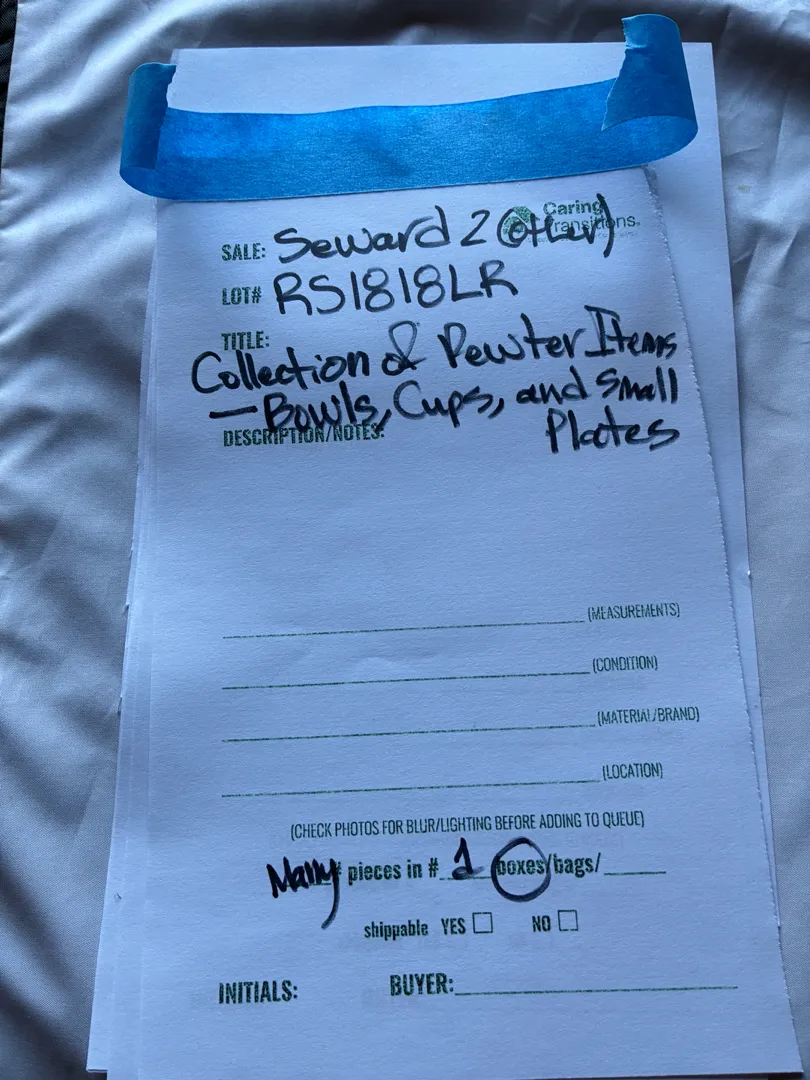 Caring
Transitions.
SALE: Seward 2 (Other)
LOT# RS1818LR
TITLE:
Collection of Pewter Items
— Bowls, Cups, and Small
Plates
DESCRIPTION/NOTES:
(MEASUREMENTS)
(CONDITION)
(MATERIAL/BRAND)
(LOCATION)
(CHECK PHOTOS FOR BLUR/LIGHTING BEFORE ADDING TO QUEUE)
Many pieces in # 1 boxes/bags/
shippable YES NO
INITIALS: BUYER: